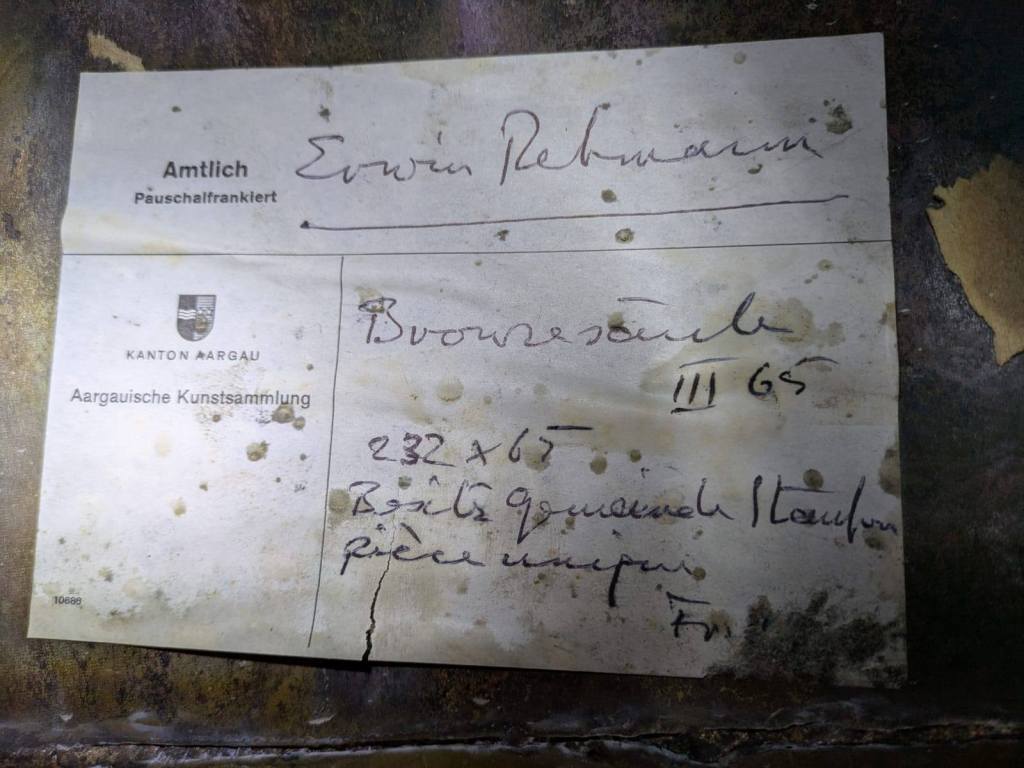 Amtlich
Pauschalfrankiert
Erwin Rehmann
KANTON AARGAU
Aargauische Kunstsammlung
10686
Bronzesäule
III 65
232 x 65
Besitz Gemeinde Staufen
pièce unique
Fr.